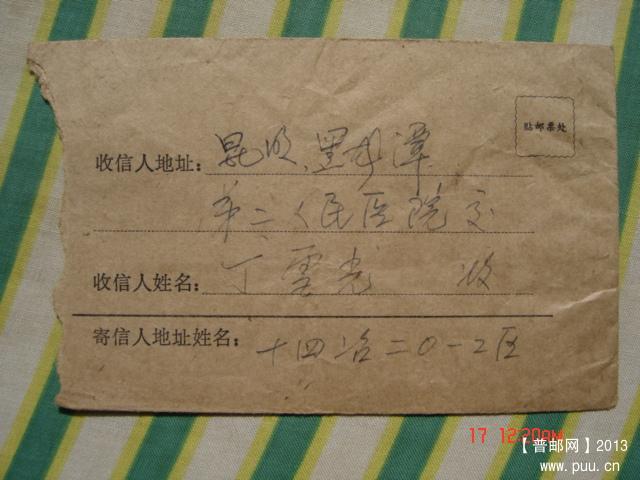 贴邮票处
收信人地址：昆明、黑水潭
第二人民医院交
收信人姓名：丁雲光 收
寄信人地址姓名：十四冶二0一工区
17 12:20AM
【普邮网】2013
www.puu.cn